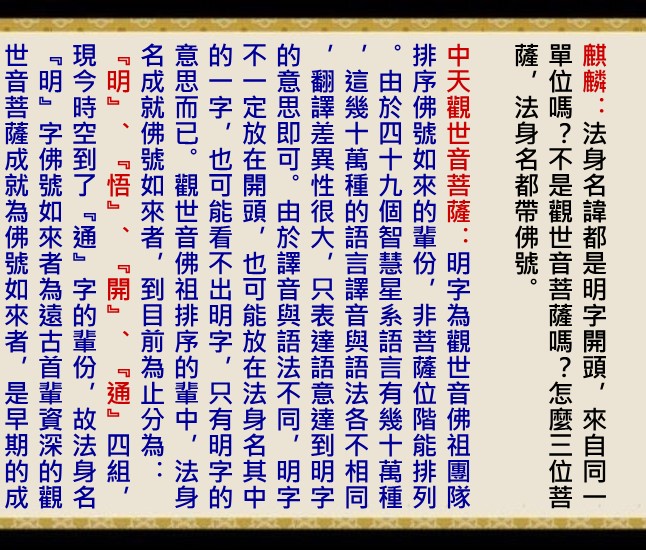 麒麟：法身名諱都是明字開頭，來自同一
單位嗎？不是觀世音菩薩嗎？怎麼三位菩
薩，法身名都帶佛號。
中天觀世音菩薩：明字為觀世音佛祖團隊
排序佛號如來的輩份，非菩薩位階能排列
。由於四十九個智慧星系語言有幾十萬種
，這幾十萬種的語言譯音與語法各不相同
，翻譯差異性很大，只表達語意達到明字
的意思即可。由於譯音與語法不同，明字
不一定放在開頭，也可能放在法身名其中
的一字，也可能看不出明字，只有明字的
意思而已。觀世音佛祖排序的輩中，法身
名成就佛號如來者，到目前為止分為：
『明』、『悟』、『開』、『通』四組，
現今時空到了『通』字的輩份，故法身名
『明』字佛號如來者為遠古首輩資深的觀
世音菩薩成就為佛號如來者，是早期的成